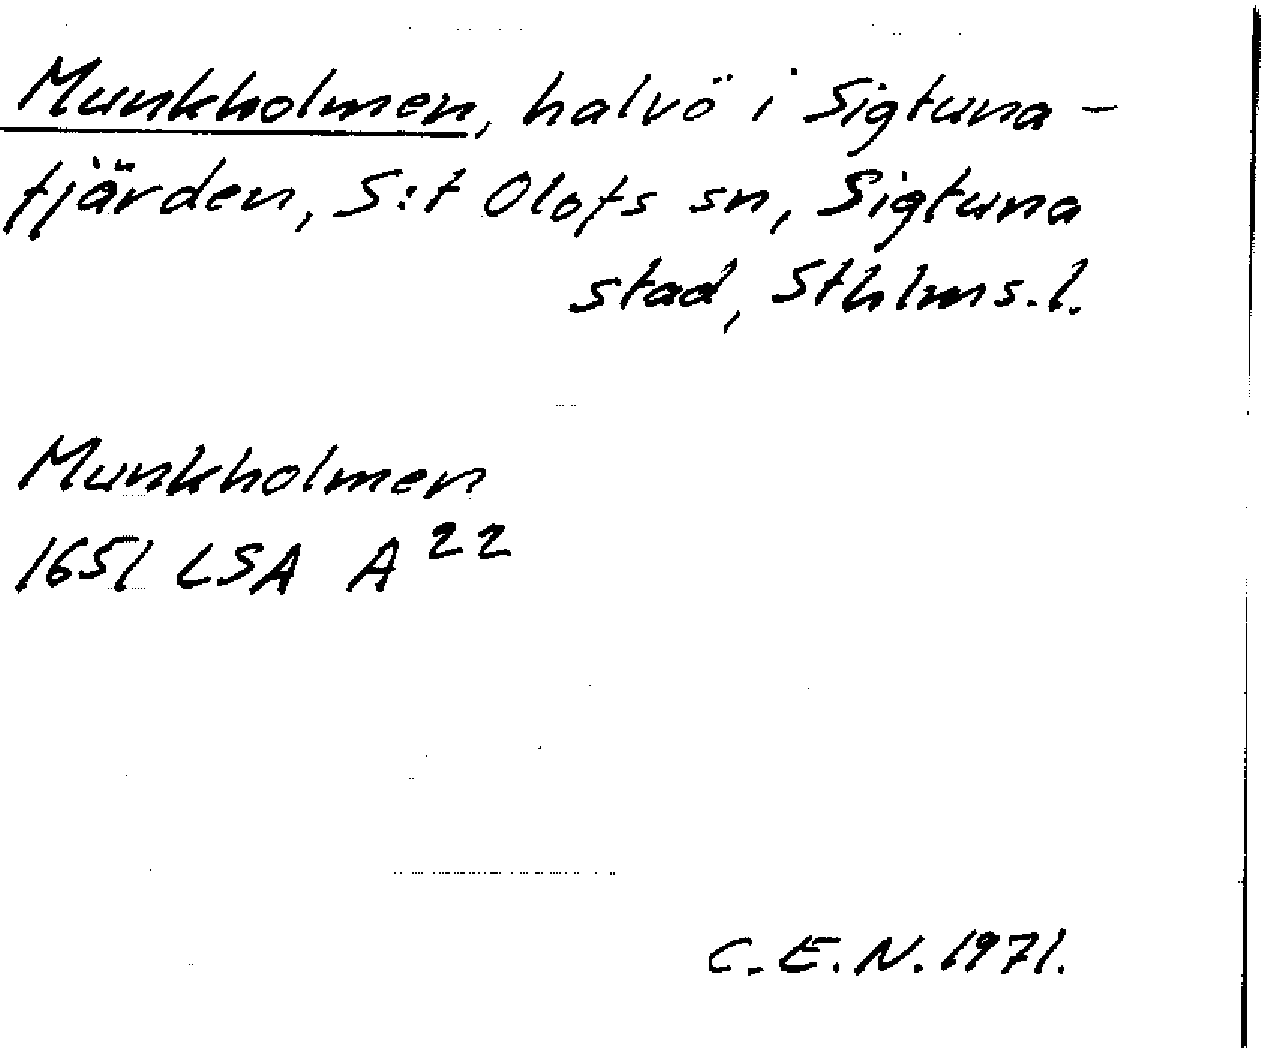 Munkholmen, halvö i Sigtuna-
fjärden, S:t Olofs sn, Sigtuna
stad, Sthlms.l.
Munkholmen
1651 LSA A 22
C.E.N. 1971.